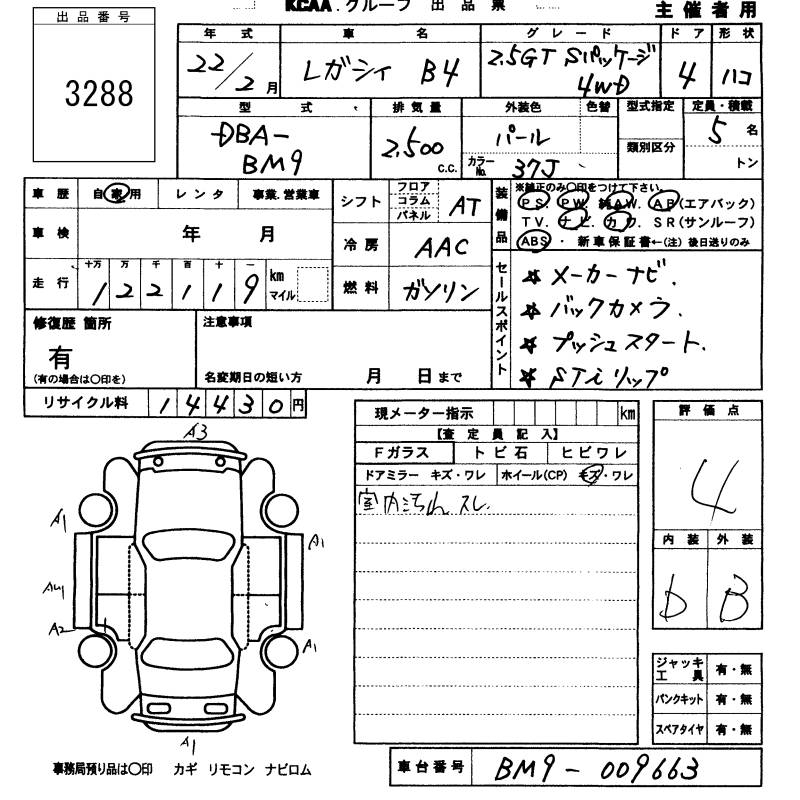 KCAA.グループ 出品票
主催者用
出品番号
3288
年式 車名 グレード ドア 形状
22/2月 レガシィ B4 2.5GT Sパッケージ 4WD 4 ハコ
型式 排気量 外装色 色替 型式指定 定員・積載
DBA-BM9 2,500 c.c. パール カラーNo. 37J 類別区分 5名 トン
車歴 自家用 レンタ 事業.営業車
車検 年 月
走行 十万 万 千 百 十 一
1 2 2 1 1 9 km マイル
シフト フロア コラム パネル AT
冷房 AAC
燃料 ガソリン
装備品
※純正のみ○印をつけて下さい。
PS. PW. 純AW. AB(エアバック)
TV. ナビ. カワ. SR(サンルーフ)
ABS ・ 新車保証書←(注)後日送りのみ
セールスポイント
☆ メーカーナビ.
☆ バックカメラ.
☆ プッシュスタート.
☆ STiリップ
修復歴 箇所
有
(有の場合は○印を)
注意事項
名変期日の短い方 月 日まで
リサイクル料 14430円
現メーター指示 km
【査定員記入】
Fガラス トビ石 ヒビワレ
ドアミラー キズ・ワレ ホイール(CP) キズ・ワレ
室内汚れ スレ
評価点
4
内装 外装
b B
ジャッキ工具 有・無
パンクキット 有・無
スペアタイヤ 有・無
A3
A1
A1
AU1
A2
A1
A1
事務局預り品は○印 カギ リモコン ナビロム
車台番号 BM9-009663